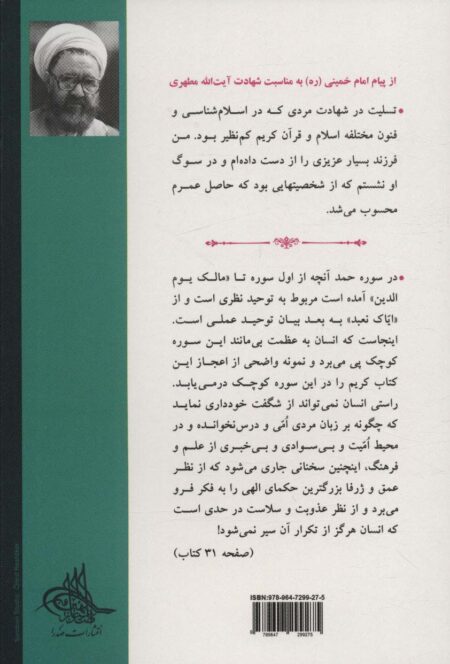 از پیام امام خمینی (ره) به مناسبت شهادت آیت‌الله مطهری
• تسلیت در شهادت مردی که در اسلام‌شناسی و
فنون مختلفه اسلام و قرآن کریم کم‌نظیر بود. من
فرزند بسیار عزیزی را از دست داده‌ام و در سوگ
او نشستم که از شخصیتهایی بود که حاصل عمرم
محسوب می‌شد.
• در سوره حمد آنچه از اول سوره تا «مالک یوم
الدین» آمده است مربوط به توحید نظری است و از
«ایّاک نعبد» به بعد بیان توحید عملی است.
اینجاست که انسان به عظمت بی‌مانند این سوره
کوچک پی می‌برد و نمونه واضحی از اعجاز این
کتاب کریم را در این سوره کوچک درمی‌یابد.
راستی انسان نمی‌تواند از شگفت خودداری نماید
که چگونه بر زبان مردی اُمّی و درس‌نخوانده و در
محیط اُمّیت و بی‌سوادی و بی‌خبری از علم و
فرهنگ، اینچنین سخنانی جاری می‌شود که از نظر
عمق و ژرفا بزرگترین حکمای الهی را به فکر فرو
می‌برد و از نظر عذوبت و سلاست در حدی است
که انسان هرگز از تکرار آن سیر نمی‌شود!
(صفحه ۳۱ کتاب)
ISBN: 978-964-7299-27-5
9 789647 299275
انتشارات صدرا